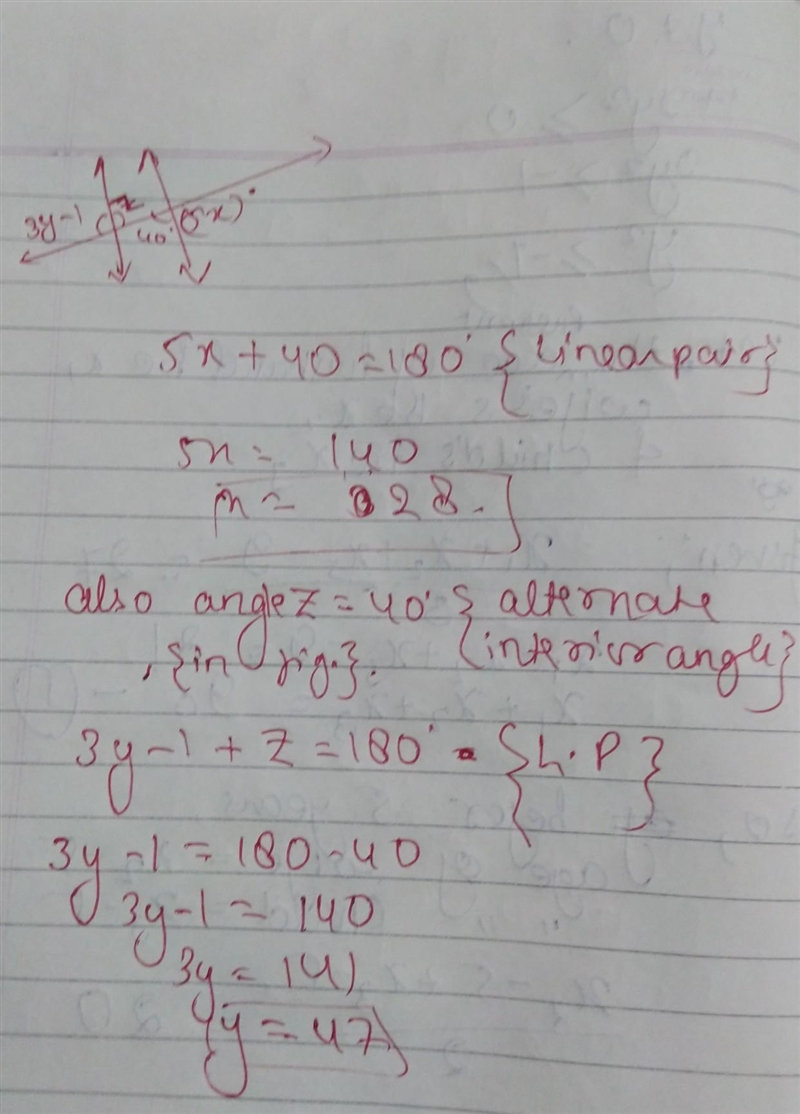 3y-1 z 40° (5x)°
5x + 40 = 180° {Linear pair}
5x = 140
x = 28.
also angle z = 40° {alternate
, {in fig.}. interior angle}
3y - 1 + z = 180° - {L.P}
3y - 1 = 180 - 40
3y - 1 = 140
3y = 141
y = 47